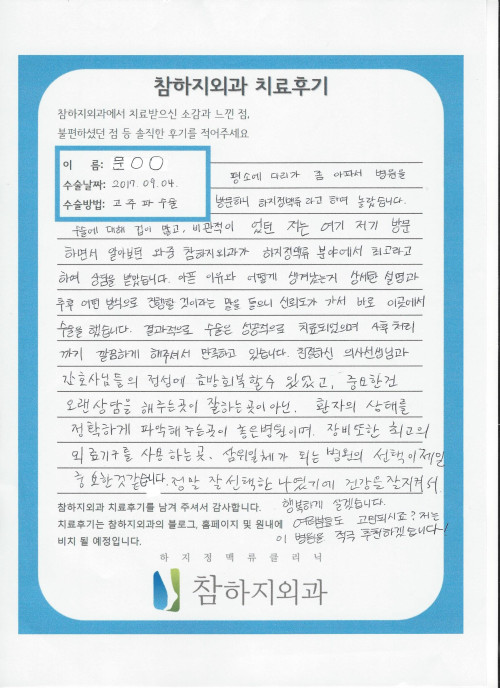 참하지외과 치료후기
참하지외과에서 치료받으신 소감과 느낀 점,
불편하셨던 점 등 솔직한 후기를 적어주세요
이 름: 문○○
수술날짜: 2017. 09. 04.
수술방법: 고주파수술
평소에 다리가 좀 아파서 병원을
방문하니 하지정맥류라고 하여 놀랐습니다.
수술에 대해 겁이 많고, 비관적이 었던 저는 여기 저기 방문
하면서 알아보던 와중 참하지외과가 하지정맥류 분야에서 최고라고
하여 상담을 받았습니다. 아픈 이유와 어떻게 생겨났는지 상세한 설명과
추후 어떤 방식으로 진행할 것이라는 말을 들으니 신뢰도가 가서 바로 이곳에서
수술을 했습니다. 결과적으로 수술은 성공적으로 치료되었으며 사후처리
까지 깔끔하게 해주셔서 만족하고 있습니다. 친절하신 의사선생님과
간호사님들의 정성에 금방회복할수 있었고, 중요한건
오랜상담을 해주는곳이 잘하는곳이 아닌. 환자의 상태를
정확하게 파악해주는곳이 좋은병원이며. 장비또한 최고의
의료기구를 사용하는곳. 삼위일체가 되는 병원의 선택이 제일
중요한것같습니다. 정말 잘 선택한 나였기에 건강을 잘지켜서
행복하게 살겠습니다.
참하지외과 치료후기를 남겨 주셔서 감사합니다.
치료후기는 참하지외과의 블로그, 홈페이지 및 원내에
비치 될 예정입니다.
여러분들도 고민되시죠? 저는
이 병원을 적극 추천하겠습니다~!
하지정맥류클리닉
참하지외과